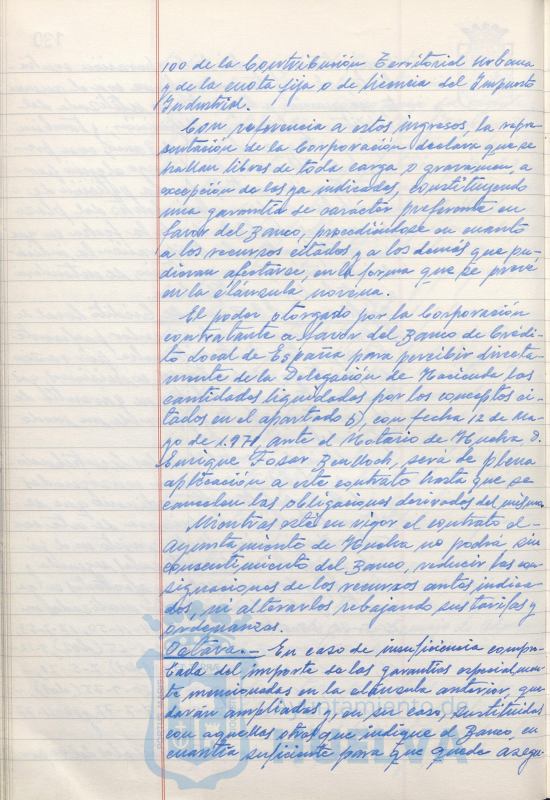 100 de la Contribución Territorial Urbana
y de la cuota fija o de licencia del Impuesto
Industrial.
Con referencia a estos ingresos, la repre-
sentación de la Corporación declara que se
hallan libres de toda carga o gravamen, a
excepción de los ya indicados, constituyendo
una garantía de carácter preferente en
favor del Banco, procediéndose en cuanto
a los recursos citados y a los demás que pu-
dieran afectarse, en la forma que se prevé
en la cláusula novena.
El poder otorgado por la Corporación
contratante a favor del Banco de Crédi-
to Local de España para percibir directa-
mente de la Delegación de Hacienda las
cantidades liquidadas por los conceptos ci-
tados en el apartado b), con fecha 12 de Ma-
yo de 1.971, ante el Notario de Huelva D.
Enrique Fosar Benlloch, será de plena
aplicación a este contrato hasta que se
cancelen las obligaciones derivadas del mismo.
Mientras esté en vigor el contrato el
Ayuntamiento de Huelva no podrá sin
consentimiento del Banco, reducir las con-
signaciones de los recursos antes indica-
dos, ni alterarlos rebajando sus tarifas y
ordenanzas.
Octava.- En caso de insuficiencia compro-
bada del importe de las garantías especialmen-
te mencionadas en la cláusula anterior, que-
darán ampliadas y, en su caso, sustituidas
con aquellas otras que indique el Banco, en
cuantía suficiente para que quede asegu-
Ayuntamiento de
HUELVA